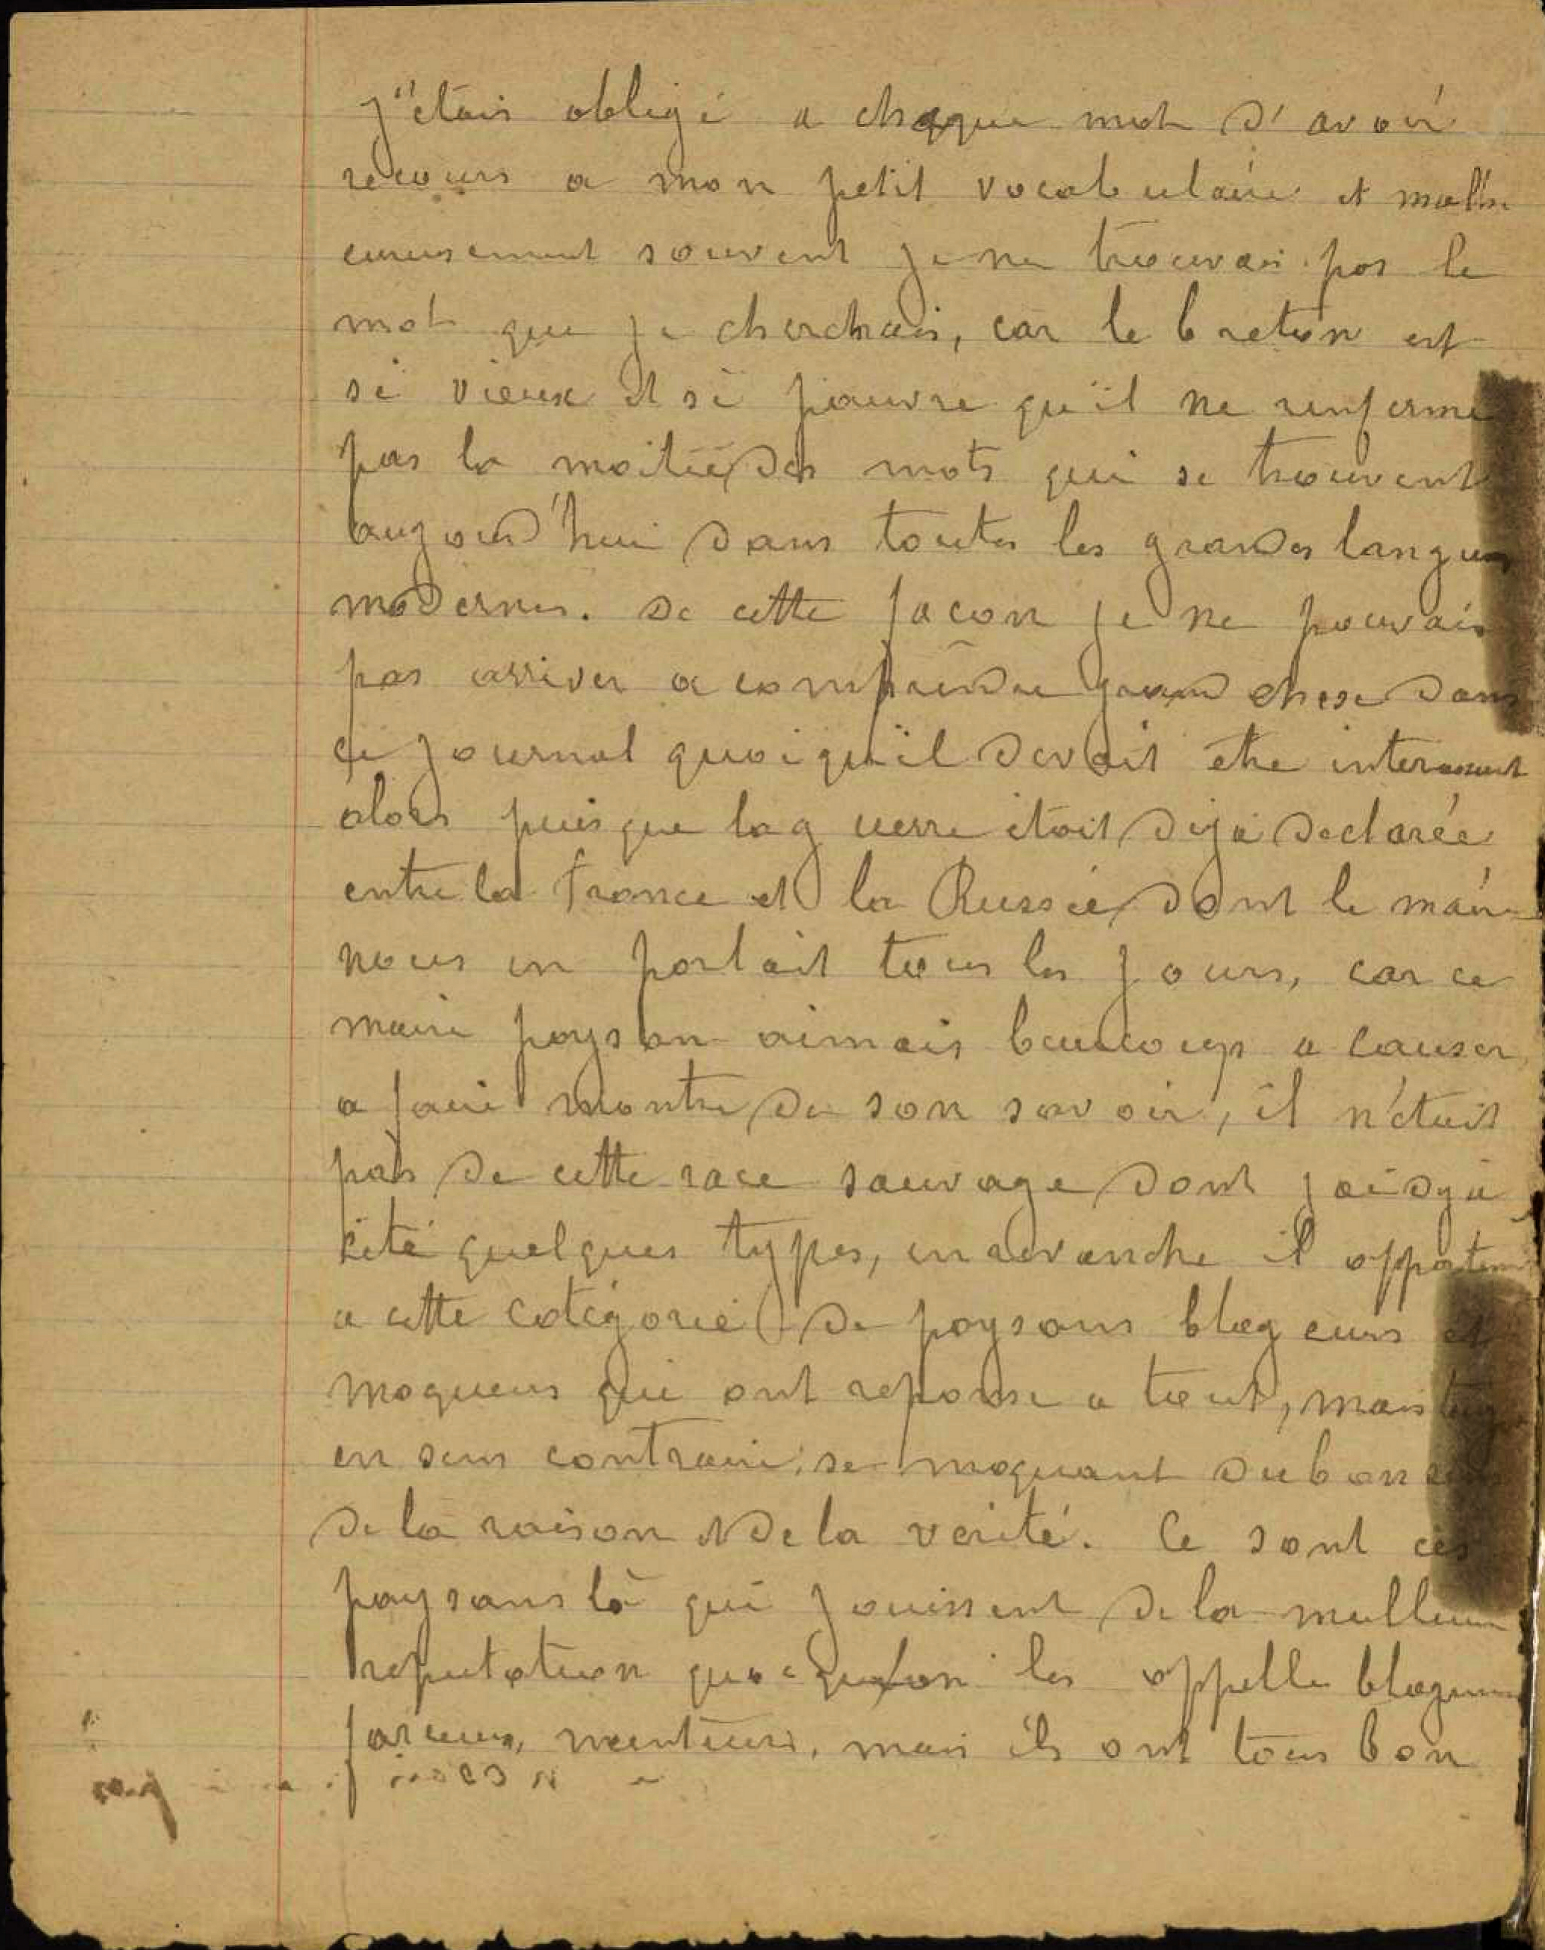 J'étais obligé a chaque mot d'avoir
recours a mon petit vocabulaire et malh
eureusement souvent je ne trouvais pas le
mot que je cherchais, car le breton est
si vieux et si pauvre qu'il ne renferme
pas la moitiée des mots qui se trouvent
aujourd'hui dans toutes les grandes langues
modernes. De cette facon je ne pouvais
pas arriver a comprendre grand chose dans
ce journal quoi qu'il devait etre interessant
alors puisque la guerre était deja declarée
entre la France et la Russie dont le maire
nous en parlait tous les jours, car ce
maire paysan aimais beaucoup a causer,
a faire montre de son savoir, il n'était
pas de cette race sauvage dont j'ai deja
cité quelques types, en revanche il appartenait
a cette catégorie de paysans blageurs et
moqueurs qui ont reponse a tout, mais
en sens contraire, se moquant du bon sens
de la raison et de la verité. Ce sont ces
paysans là qui jouissent de la meilleure
reputation quoi qu'on les appelle blagueurs
farceurs, menteurs, mais ils ont tous bon